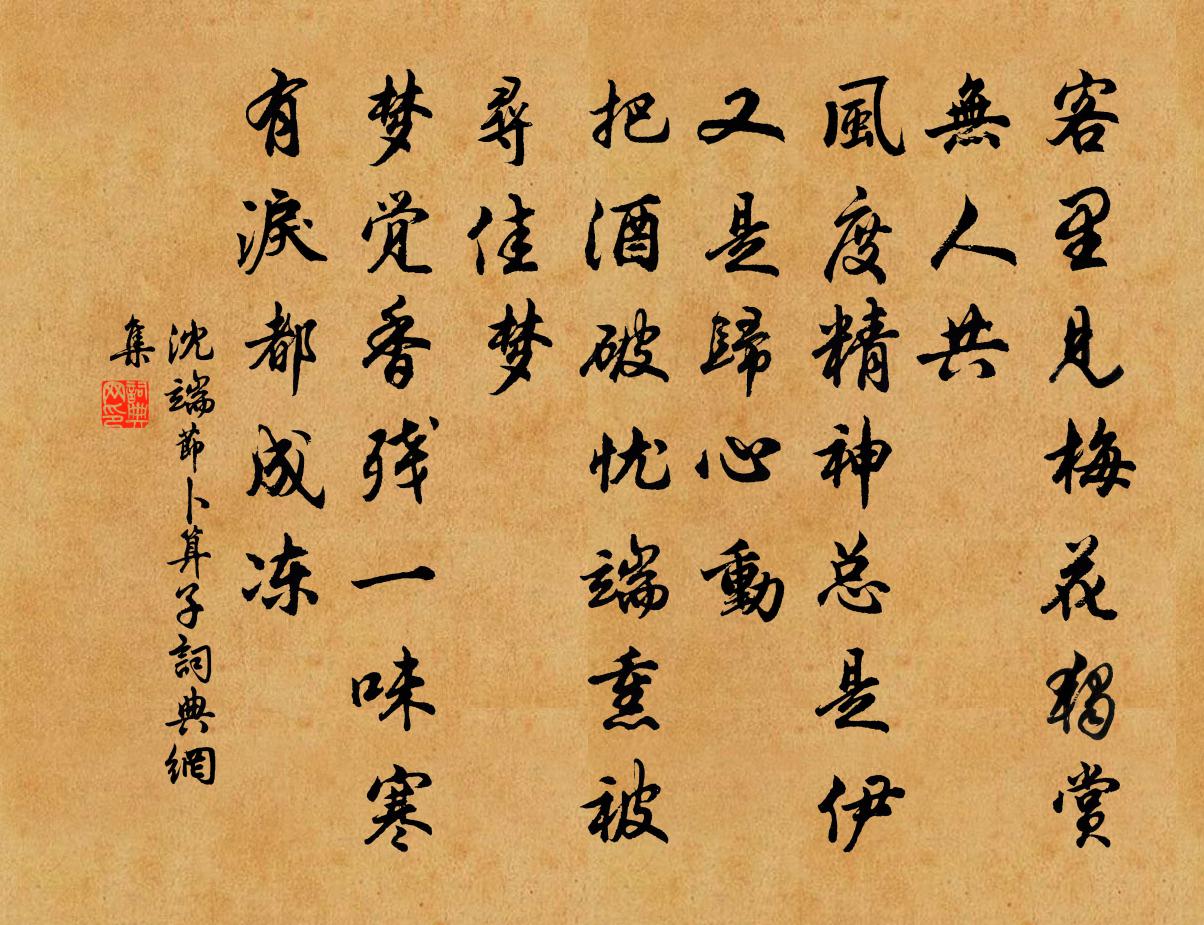 客里見梅花獨賞
無人共
風度精神总是伊
又是歸心動
把酒破忧端熏被
尋佳梦
梦觉香残一味寒
有淚都成冻
沈端節卜算子詞典網
集
詞典
网印